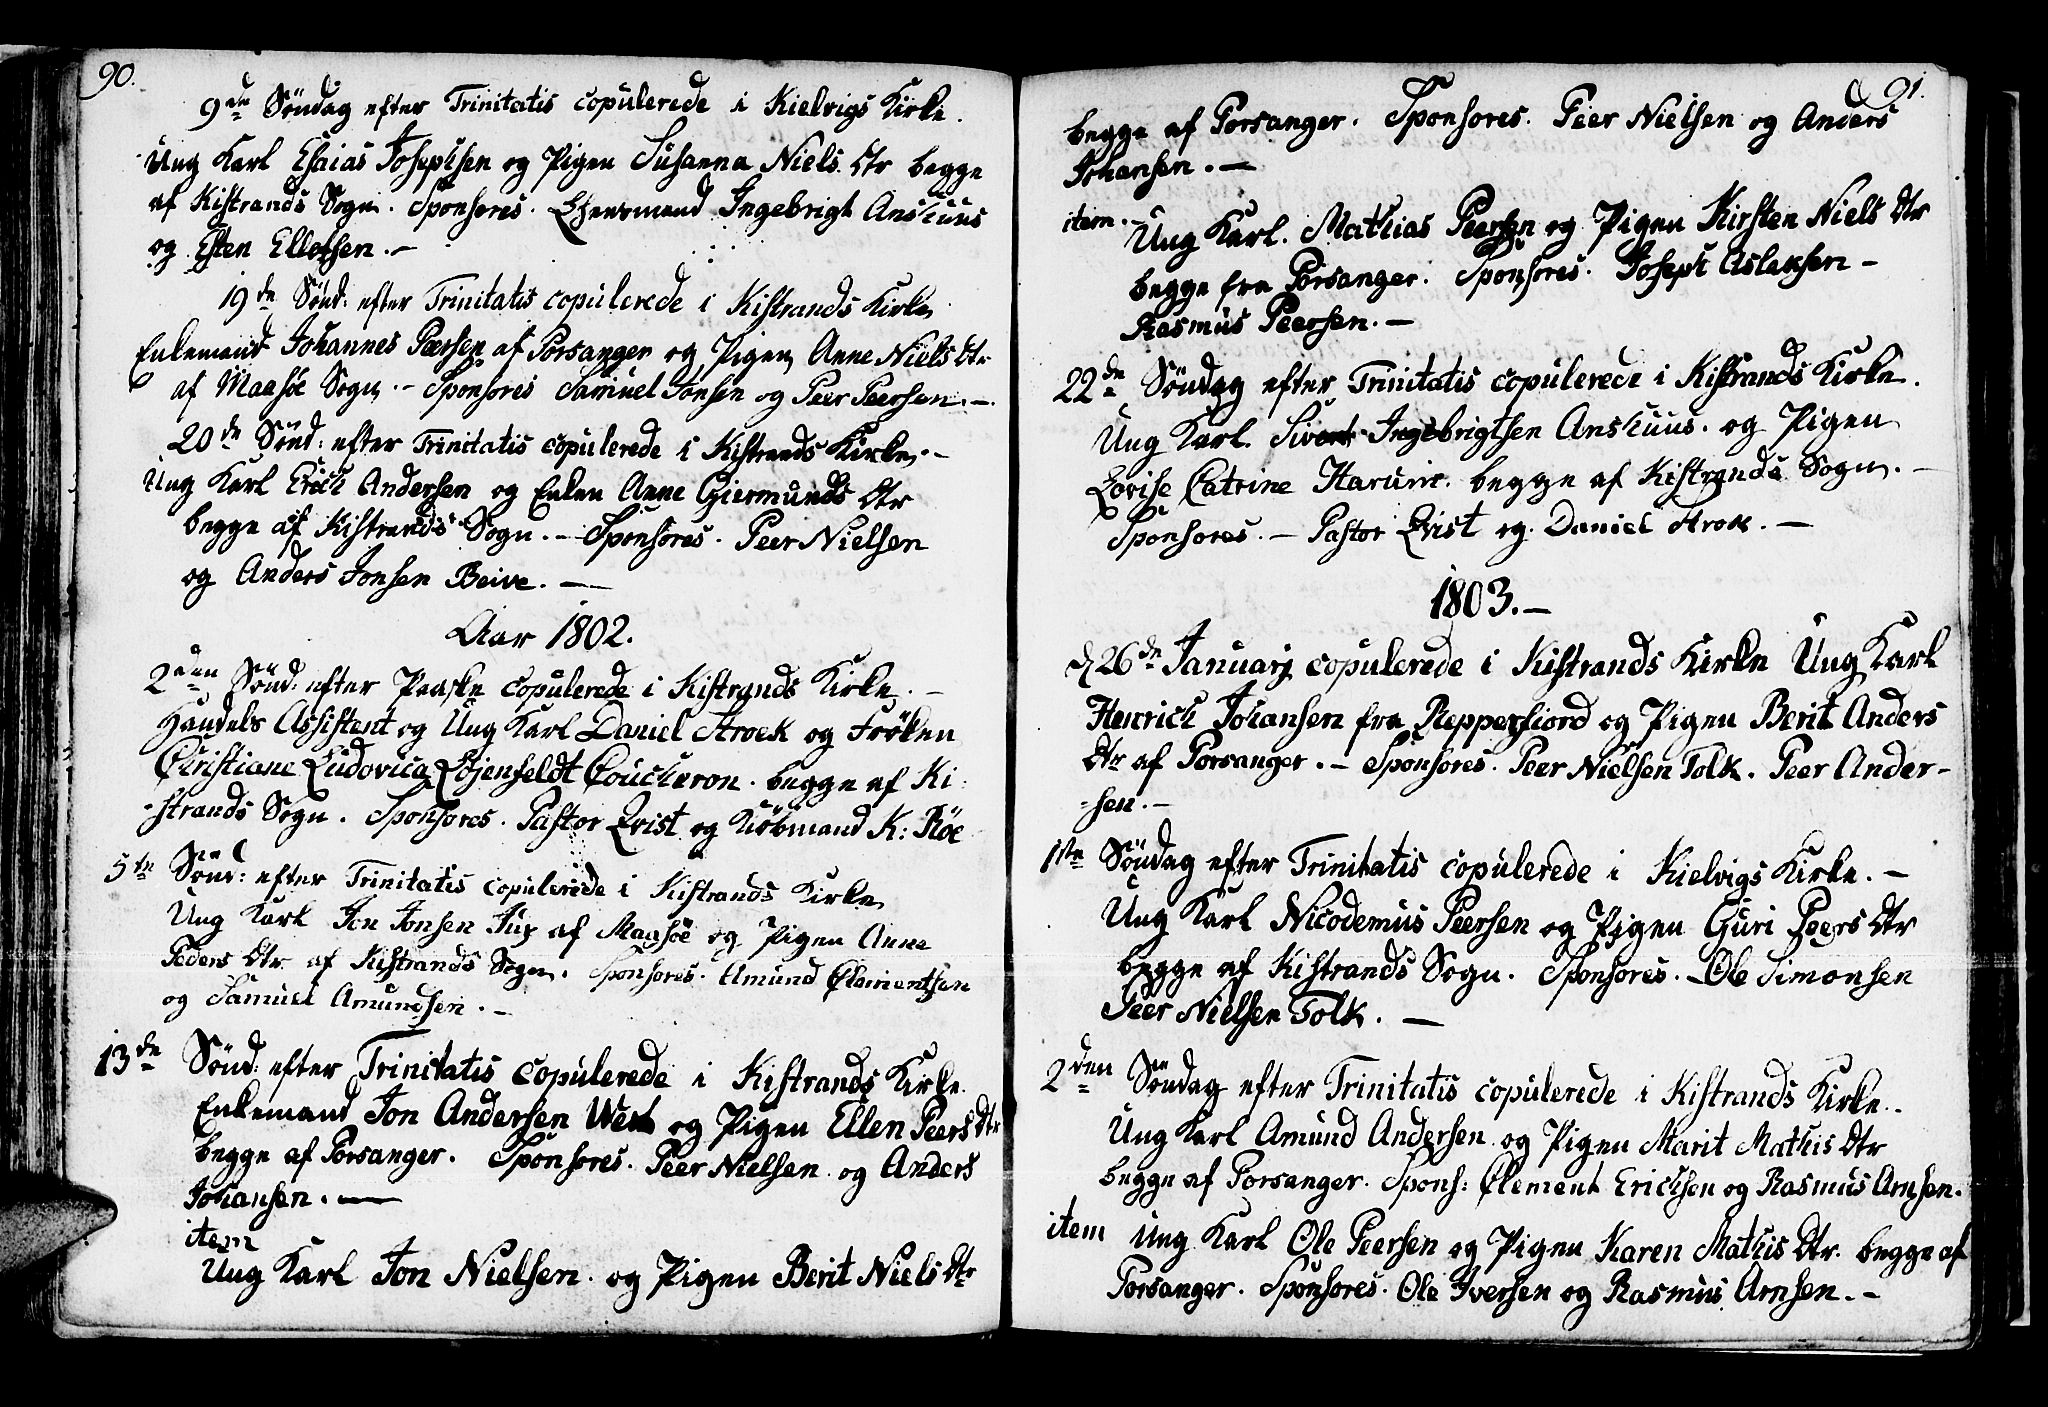 90.
9de Söndag efter Trinitatis copulerede i Kielvigs Kirke.
Ung Karl Esaias Josephsen og Pigen Susanna Niels Dtr begge
af Kistrands Sogn. Sponsores. Lhensmand Ingebrigt Anshuus
og Esten Ellefsen. -
19de Sönd: efter Trinitatis copulerede i Kistrands Kirke
Enkemand Johannes Peersen af Porsanger og Pigen Anne Niels Dtr
af Maasöe Sogn. - Sponsores Samuel Jonsen og Peer Peersen. -
20de Sönd: efter Trinitatis copulerede i Kistrands Kirke. -
Ung Karl Erich Andersen og Enken Anne Giermunds Dtr
begge af Kistrands Sogn. - Sponsores. Peer Nielsen
og Anders Jonsen Beive. -
Aar 1802.
2den Sönd: efter Paaske copulerede i Kistrands Kirke. -
Handels Assistent og Ung Karl Daniel Aroek og Fröken
Christiane Ludovica Löjenfeldt Coucheron. begge af Ki-
-strands Sogn. Sponsores. Pastor Qvist og Kiöbmand K: Röe
5te Sönd: efter Trinitatis copulerede i Kistrands Kirke
Ung Karl Jon Jonsen af Maasöe og Pigen Anne
Peders Dtr af Kistrands Sogn. Sponsores. Amund Clementsen
og Samuel Amundsen. -
13de Sönd: efter Trinitatis copulerede i Kistrands Kirke.
Enkemand Jon Andersen West og Pigen Ellen Peers Dtr
begge af Porsanger. Sponsores. Peer Nielsen og Anders
Johansen. -
item
Ung Karl Jon Nielsen. og Pigen Berit Niels Dtr
91.
begge af Porsanger. Sponsores. Peer Nielsen og Anders
Johansen. -
item. - Ung Karl. Mathias Peersen og Pigen Kirsten Niels Dtr
begge fra Porsanger. Sponsores. Joseph Aslaksen -
Rasmus Peersen. -
22de Söndag efter Trinitatis copulerede i Kistrands Kirke.
Ung Karl Sivert Ingebrigtsen Anshuus. og Pigen
Lovise Catrine begge af Kistrands Sogn. -
Sponsores. - Pastor Qvist og Daniel Arok. -
1803. -
d 26de Januarj copulerede i Kistrands Kirke Ung Karl
Henrich Johansen fra Repperfiord og Pigen Berit Anders
Dtr af Porsanger. - Sponsores. Peer Nielsen Tolk. Peer Ander-
-sen. -
1ste Söndag efter Trinitatis copulerede i Kielvigs Kirke. -
Ung Karl Nicodemus Peersen og Pigen Guri Peers Dtr
begge af Kistrands Sogn. Sponsores. - Ole Simonsen
Peer Nielsen Tolk. -
2den Söndag efter Trinitatis copulerede i Kistrands Kirke.
Ung Karl Amund Andersen og Pigen Marit Mathis Dtr
begge af Porsanger. Spons: Clement Erichsen og Rasmus Arnsen.
item Ung Karl Ole Peersen og Pigen Karen Mathis Dtr. begge af
Porsanger. Sponsores. Ole Iversen og Rasmus Arnsen. -